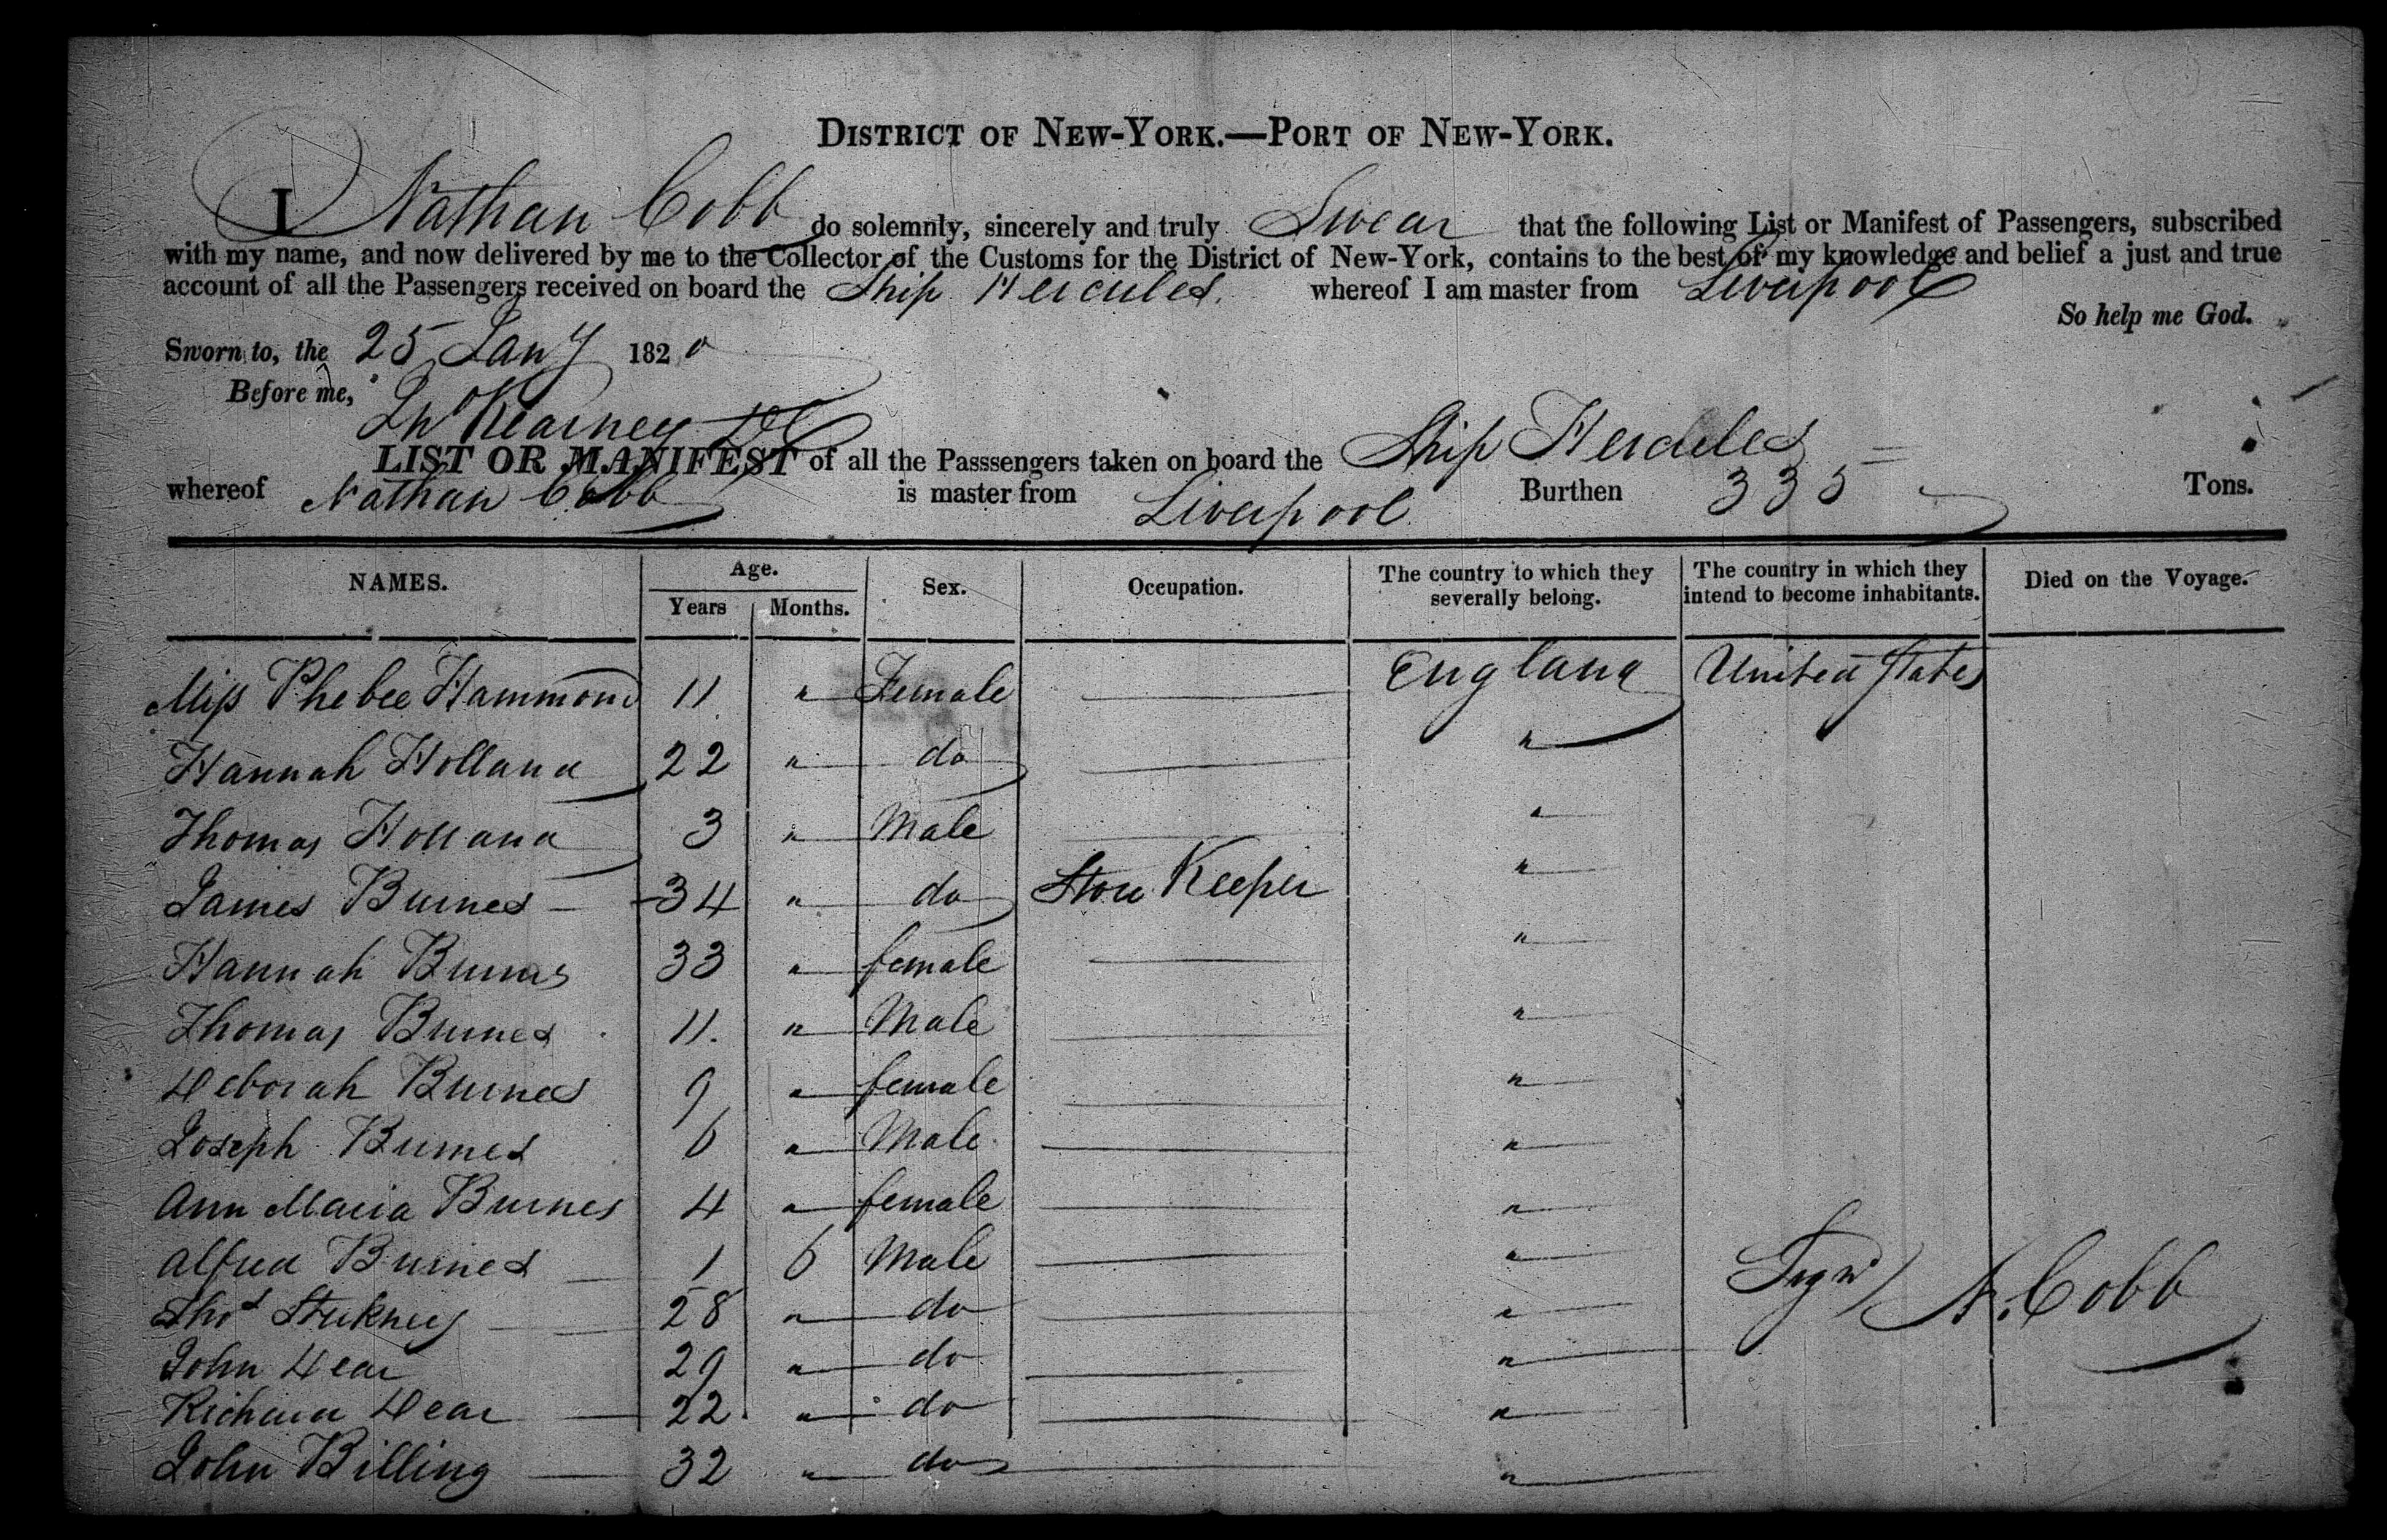 DISTRICT OF NEW-YORK.—PORT OF NEW-YORK.
I Nathan Cobb do solemnly, sincerely and truly Swear that the following List or Manifest of Passengers, subscribed
with my name, and now delivered by me to the Collector of the Customs for the District of New-York, contains to the best of my knowledge and belief a just and true
account of all the Passengers received on board the Ship Hercules. whereof I am master from Liverpool
So help me God.
Sworn to, the 25 Jany 1820
Before me,
Jno Kearney
LIST OR MANIFEST of all the Passsengers taken on board the Ship Hercules
whereof Nathan Cobb is master from Liverpool Burthen 335 Tons.
NAMES. Age. Years Months. Sex. Occupation. The country to which they severally belong. The country in which they intend to become inhabitants. Died on the Voyage.
Miss Phebee Hammond 11 " Female — England United States
Hannah Holland 22 " do — "
Thomas Holland 3 " Male — "
James Burnes 34 " do Store Keeper "
Hannah Burnes 33 " female — "
Thomas Burnes 11. " Male — "
Deborah Burnes 9 " female — "
Joseph Burnes 6 " Male — "
Ann Maria Burnes 4 " female — "
Alfred Burnes 1 6 Male — "
Thos Stukney 28 " do — "
Signd N. Cobb
John Dear 29 " do — "
Richard Dear 22 " do — "
John Billing 32 " do — "